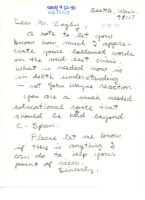 Seattle, Wash.
98117
Dear Mr. Zogby,
A note to let you
know how much I appre-
ciate your balanced words
on the mid-east crisis.
What is needed now is
in depth understanding
- not John Wayne reaction.
You are a much needed
educational voice that
should be held beyond
C-Span.
Please let me know
if there is anything I
can do to help your
point of view.
Sincerely,